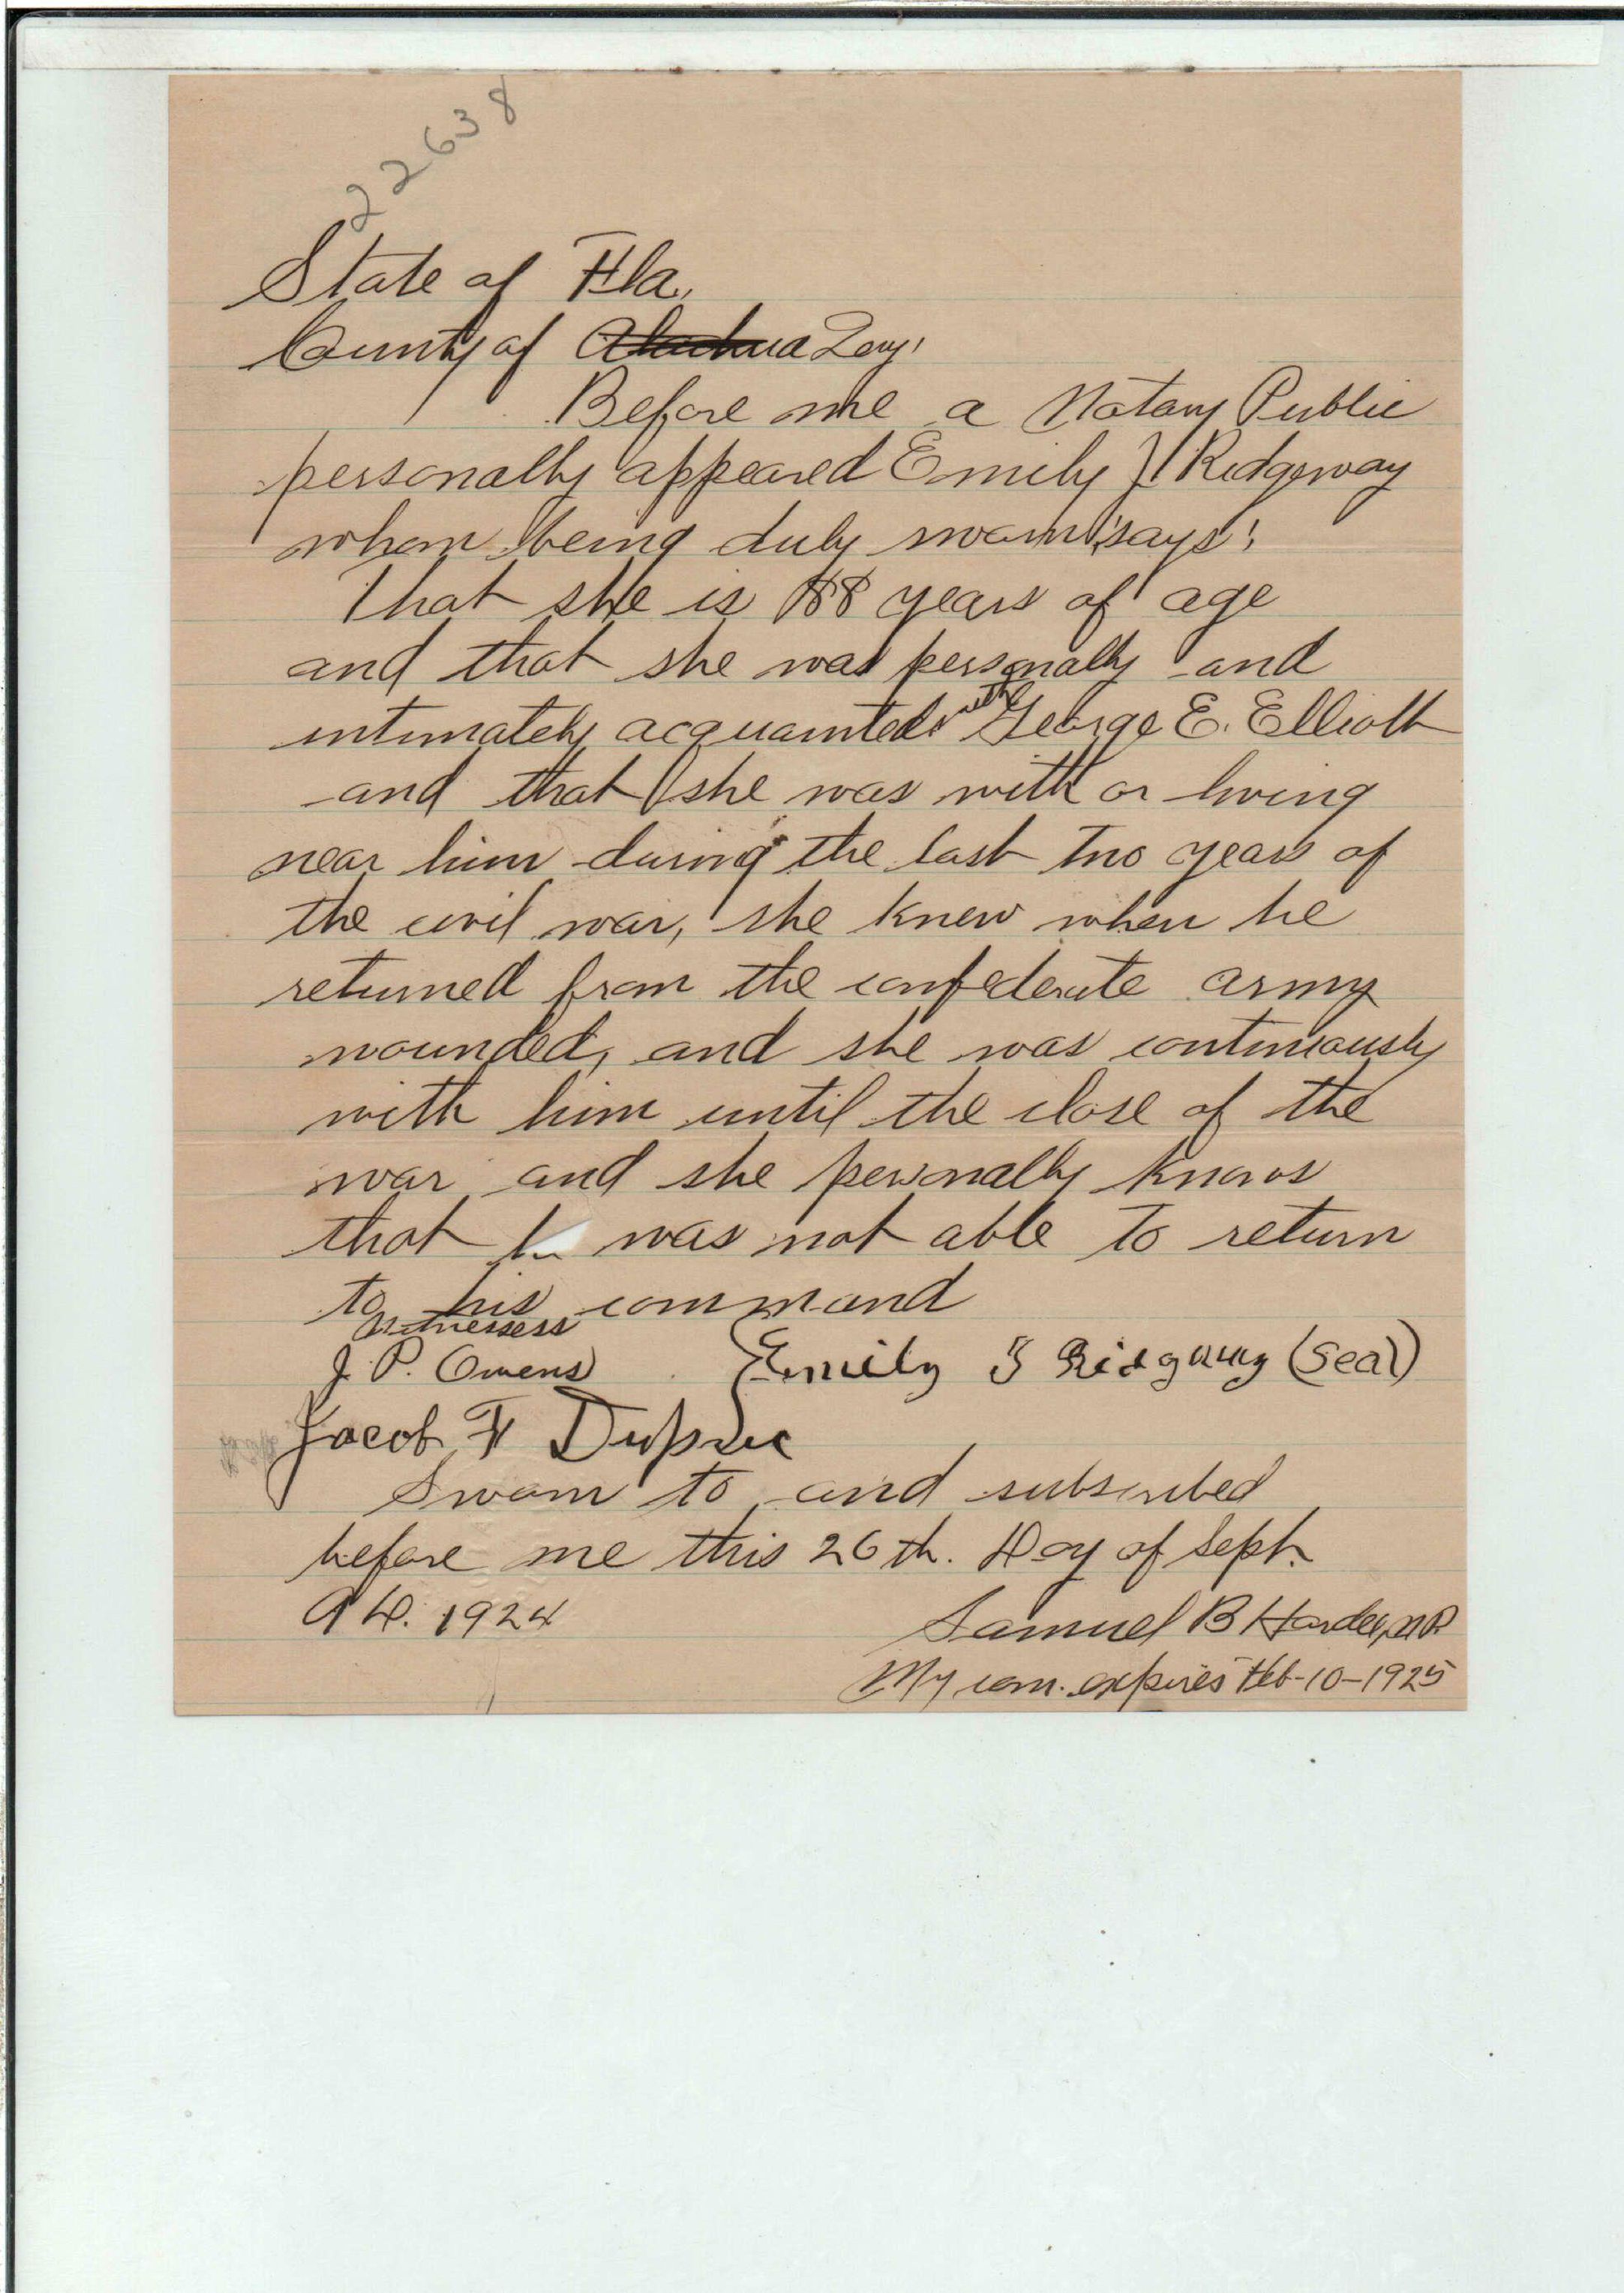 22638
State of Fla.
County of Alachua Levy.
Before me a Notary Public
personally appeared Emily J Ridgeway
whom being duly sworn says:
That she is 88 years of age
and that she was personally and
intimately acquainted with George E. Elliott
and that she was with or living
near him during the last two years of
the civil war, she knew when he
returned from the confederate army
wounded, and she was continuously
with him until the close of the
war and she personally knows
that h was not able to return
to his command
Witnessess
J. P. Owens Emily J Ridgway (Seal)
Jacob F Dupree
Sworn to and subscribed
before me this 26th. Day of Sept.
A D. 1924
Samuel B Hardee, N P.
My com. expires Feb-10-1925